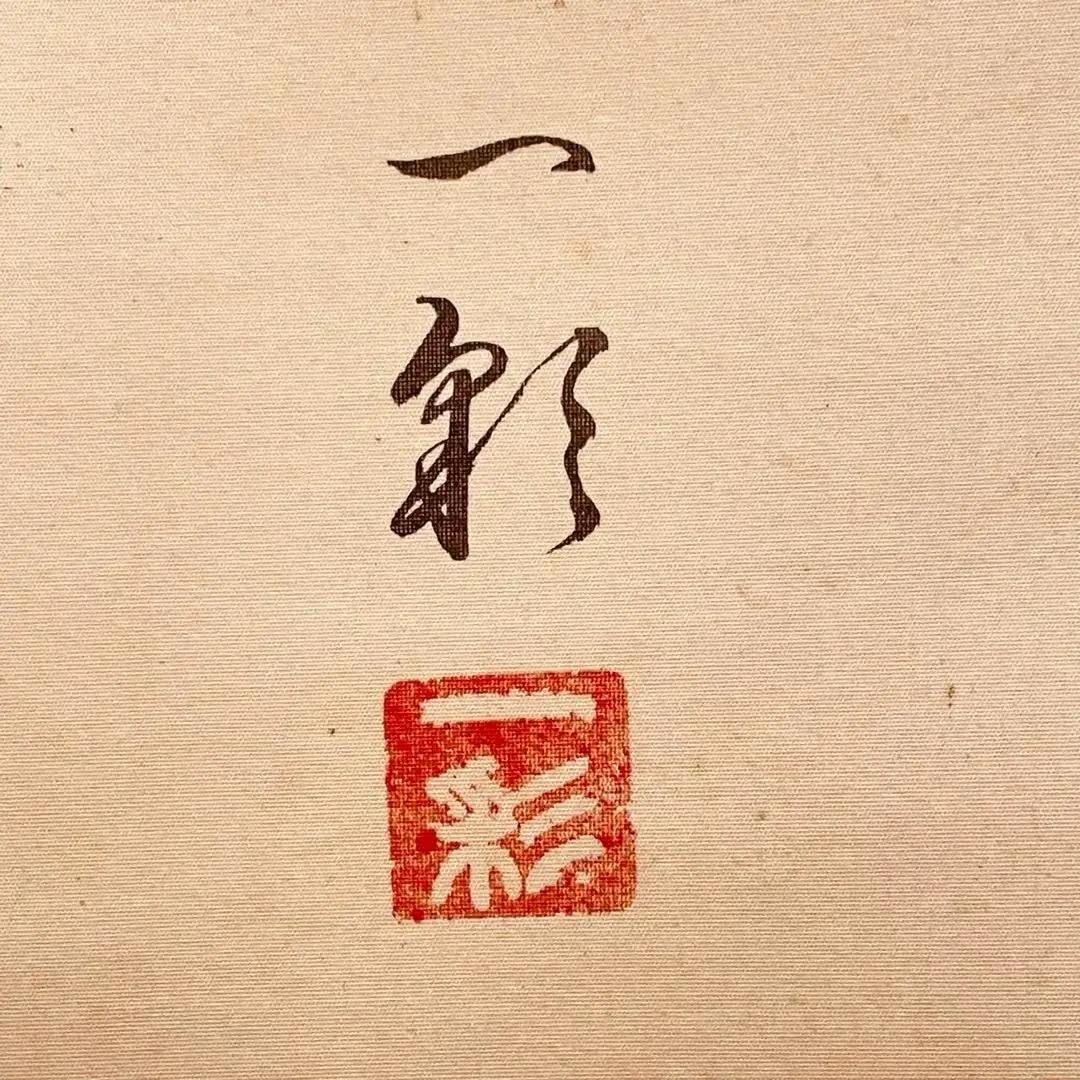 一
彩
一彩